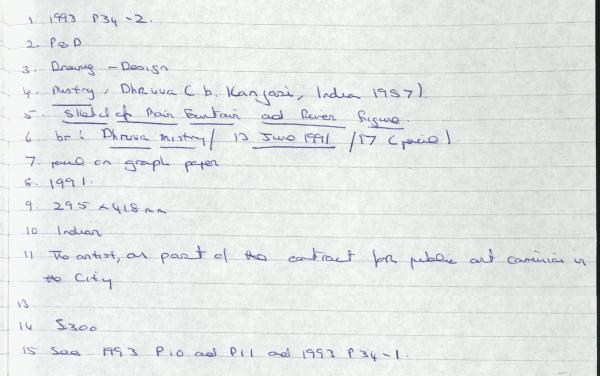 1. 1993 P34-2.
2. P&D
3. Drawing - Design
4. Mistry, Dhruva (b. Kanjari, India 1957)
5. Sketch of Main Fountain and River Figure.
6 br: Dhruva Mistry/ 13 June 1991 /17 (pencil).
7. pencil on graph paper
8. 1991.
9. 295 x 418mm
10 Indian
11 The artist, as part of the contract for public art commission in
the City
13
14 £300
15 See 1993 P10 and P11 and 1993 P34-1.